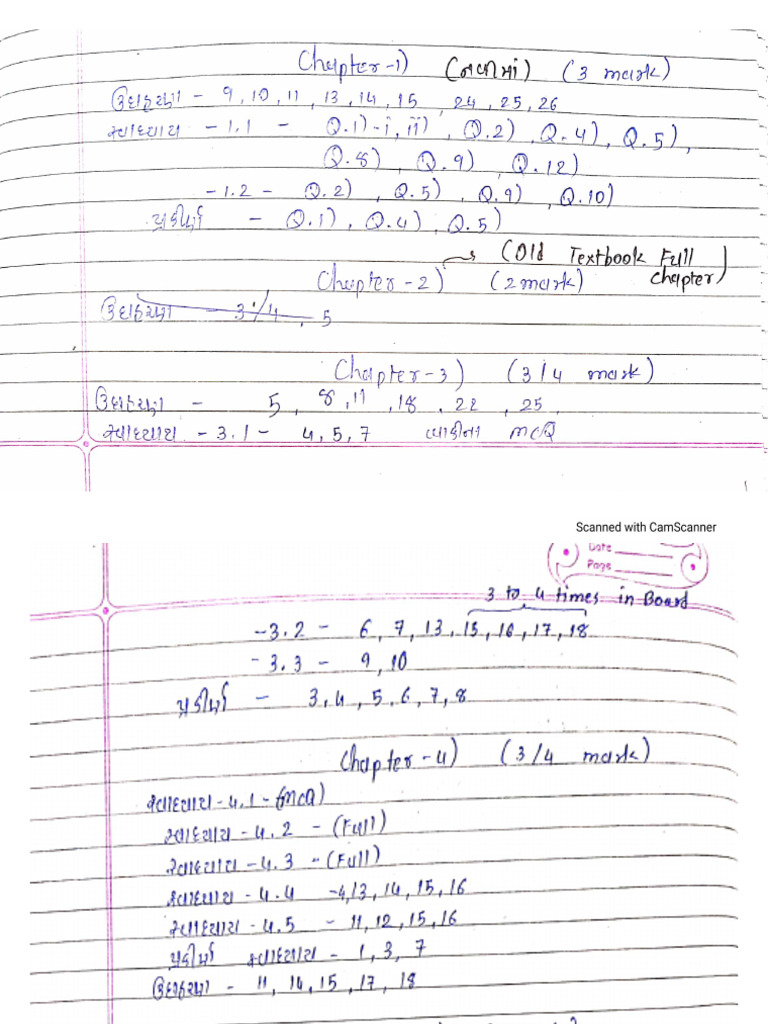 Chapter-1) (નવીમાં) (3 mark)
ઉદાહરણ - 9, 10, 11, 13, 14, 15, 24, 25, 26
સ્વાધ્યાય - 1.1 - Q.1)-i, ii), Q.2), Q.4), Q.5),
Q.8), Q.9), Q.12)
-1.2 - Q.2), Q.5), Q.9), Q.10)
પ્રકીર્ણ - Q.1), Q.4), Q.5)
(Old Textbook Full
Chapter-2) (2 mark) chapter)
ઉદાહરણ - 3, 4, 5
Chapter-3) (3/4 mark)
ઉદાહરણ - 5, 8, 11, 18, 22, 25
સ્વાધ્યાય - 3.1 - 4, 5, 7 બાકીના MCQ
1
Scanned with CamScanner
Date
Page
3 to 4 times in Board
-3.2 - 6, 7, 13, 15, 16, 17, 18
-3.3 - 9, 10
પ્રકીર્ણ - 3, 4, 5, 6, 7, 8
Chapter-4) (3/4 mark)
સ્વાધ્યાય-4.1-(MCQ)
સ્વાધ્યાય-4.2 -(Full)
સ્વાધ્યાય-4.3 -(Full)
સ્વાધ્યાય-4.4 -4, 13, 14, 15, 16
સ્વાધ્યાય-4.5 - 11, 12, 15, 16
પ્રકીર્ણ સ્વાધ્યાય - 1, 3, 7
ઉદાહરણ - 11, 14, 15, 17, 18